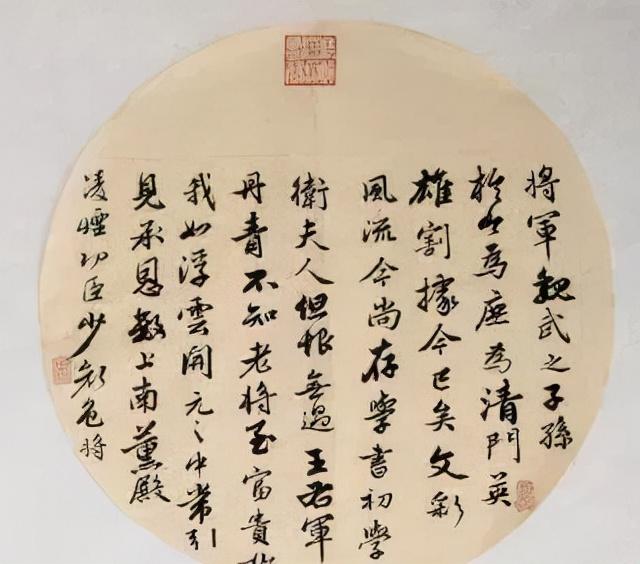 將軍魏武之子孫
於今為庶為清門英
雄割據今已矣文彩
風流今尚存學書初學
衛夫人但恨無過王右軍
丹青不知老將至富貴
我如浮雲開元之中常引
見承恩數上南薰殿
凌煙功臣少顏色將